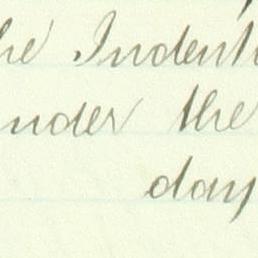 he Indent
nder the
day